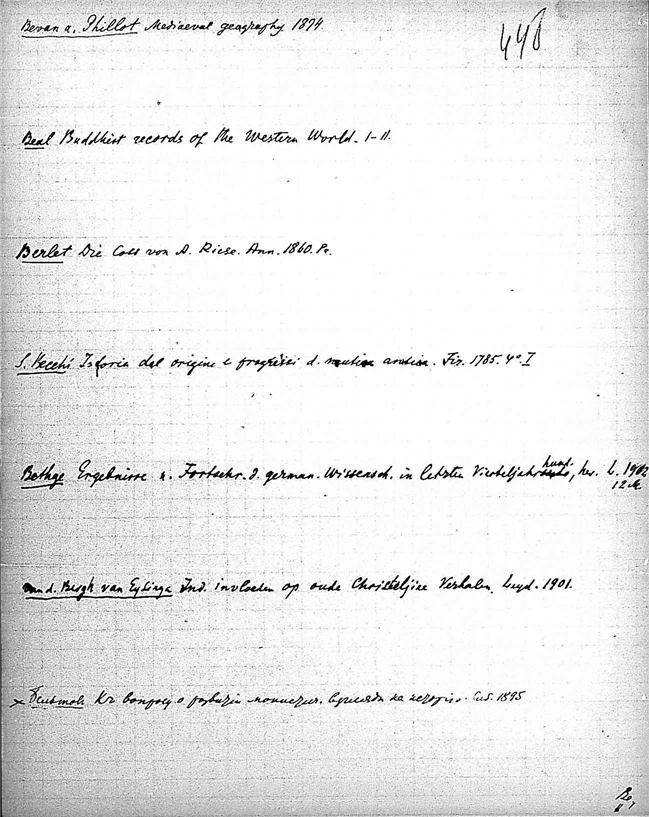 448
Bevan a. Phillot Mediaeval geography 1874.
Beal Buddhist records of the Western World. I-II.
Berlet Die Coss von A. Riese. Ann. 1860. Pr.
S. Becchi Istoria del origine e progressi d. nautica antica. Fir. 1785. 4° I
Bethge Ergebnisse u. Fortschr. d. german. Wissensch. in letzten Vierteljahrhund., her. L. 1902
12 M
v. d. Bergh van Eysinga Ind. invloeden op oude Christelijke Verhalen. Leyd. 1901.
Къ вопросу о развитіи на 1895
Be